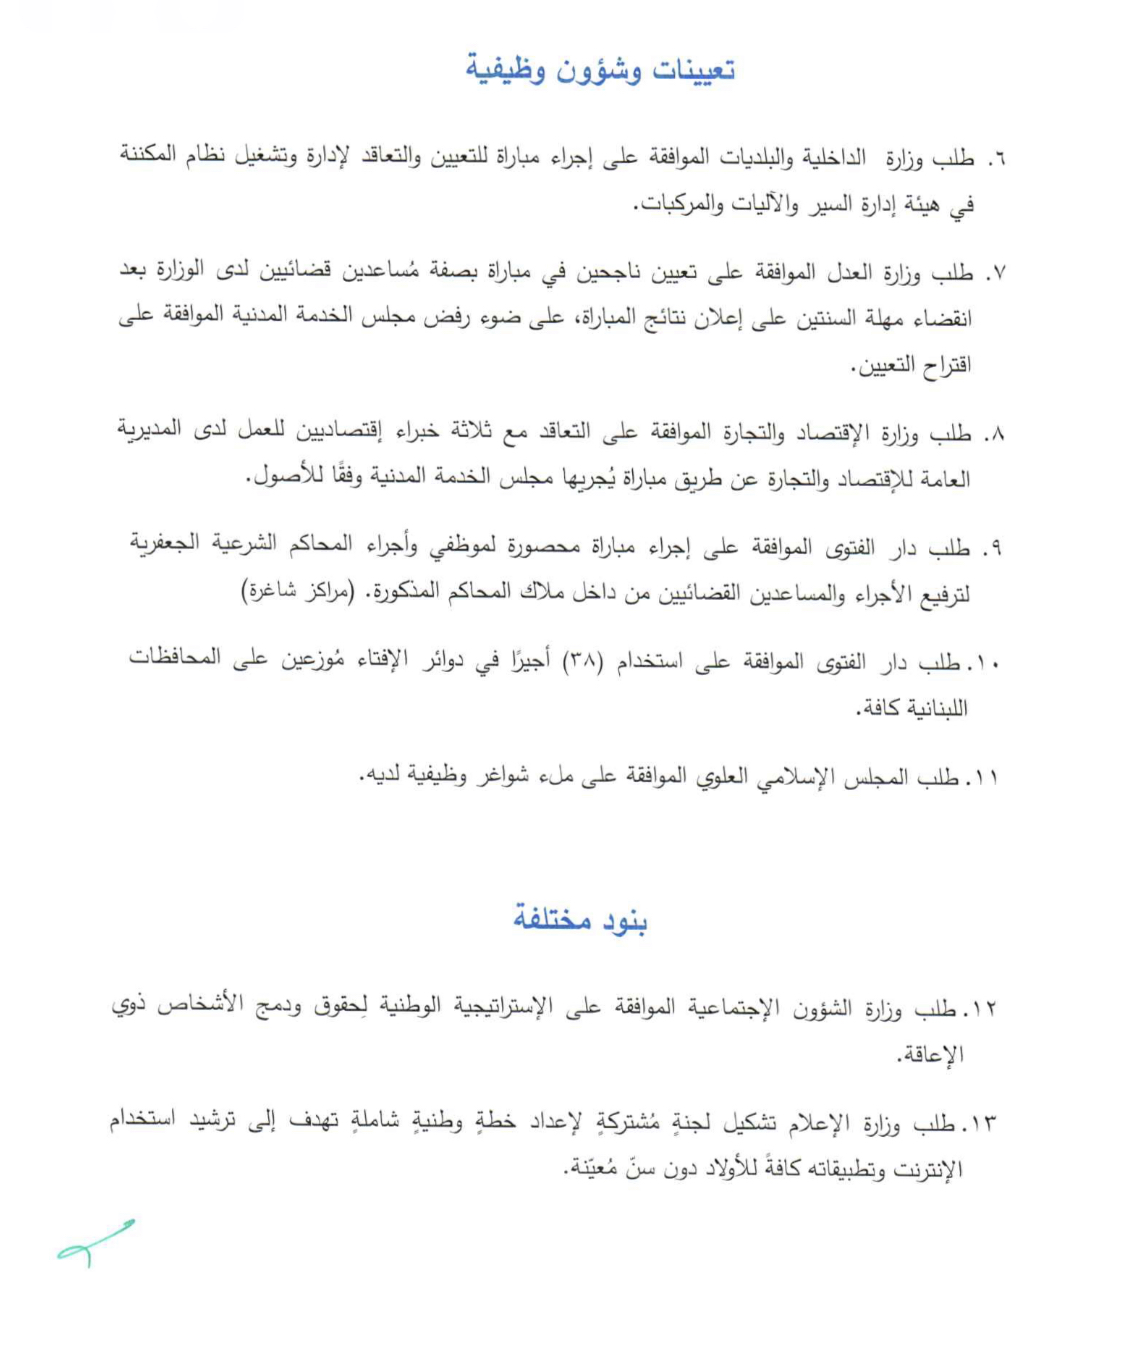 تعيينات وشؤون وظيفية
٦. طلب وزارة الداخلية والبلديات الموافقة على إجراء مباراة للتعيين والتعاقد لإدارة وتشغيل نظام المكننة
في هيئة إدارة السير والآليات والمركبات.
٧. طلب وزارة العدل الموافقة على تعيين ناجحين في مباراة بصفة مُساعدين قضائيين لدى الوزارة بعد
انقضاء مهلة السنتين على إعلان نتائج المباراة، على ضوء رفض مجلس الخدمة المدنية الموافقة على
اقتراح التعيين.
٨. طلب وزارة الإقتصاد والتجارة الموافقة على التعاقد مع ثلاثة خبراء إقتصاديين للعمل لدى المديرية
العامة للإقتصاد والتجارة عن طريق مباراة يُجريها مجلس الخدمة المدنية وفقًا للأصول.
٩. طلب دار الفتوى الموافقة على إجراء مباراة محصورة لموظفي وأجراء المحاكم الشرعية الجعفرية
لترفيع الأجراء والمساعدين القضائيين من داخل ملاك المحاكم المذكورة. (مراكز شاغرة)
١٠. طلب دار الفتوى الموافقة على استخدام (٣٨) أجيرًا في دوائر الإفتاء مُوزعين على المحافظات
اللبنانية كافة.
١١. طلب المجلس الإسلامي العلوي الموافقة على ملء شواغر وظيفية لديه.
بنود مختلفة
١٢. طلب وزارة الشؤون الإجتماعية الموافقة على الإستراتيجية الوطنية لِحقوق ودمج الأشخاص ذوي
الإعاقة.
١٣. طلب وزارة الإعلام تشكيل لجنةٍ مُشتركةٍ لإعداد خطةٍ وطنيةٍ شاملةٍ تهدف إلى ترشيد استخدام
الإنترنت وتطبيقاته كافةً للأولاد دون سنّ مُعيّنة.